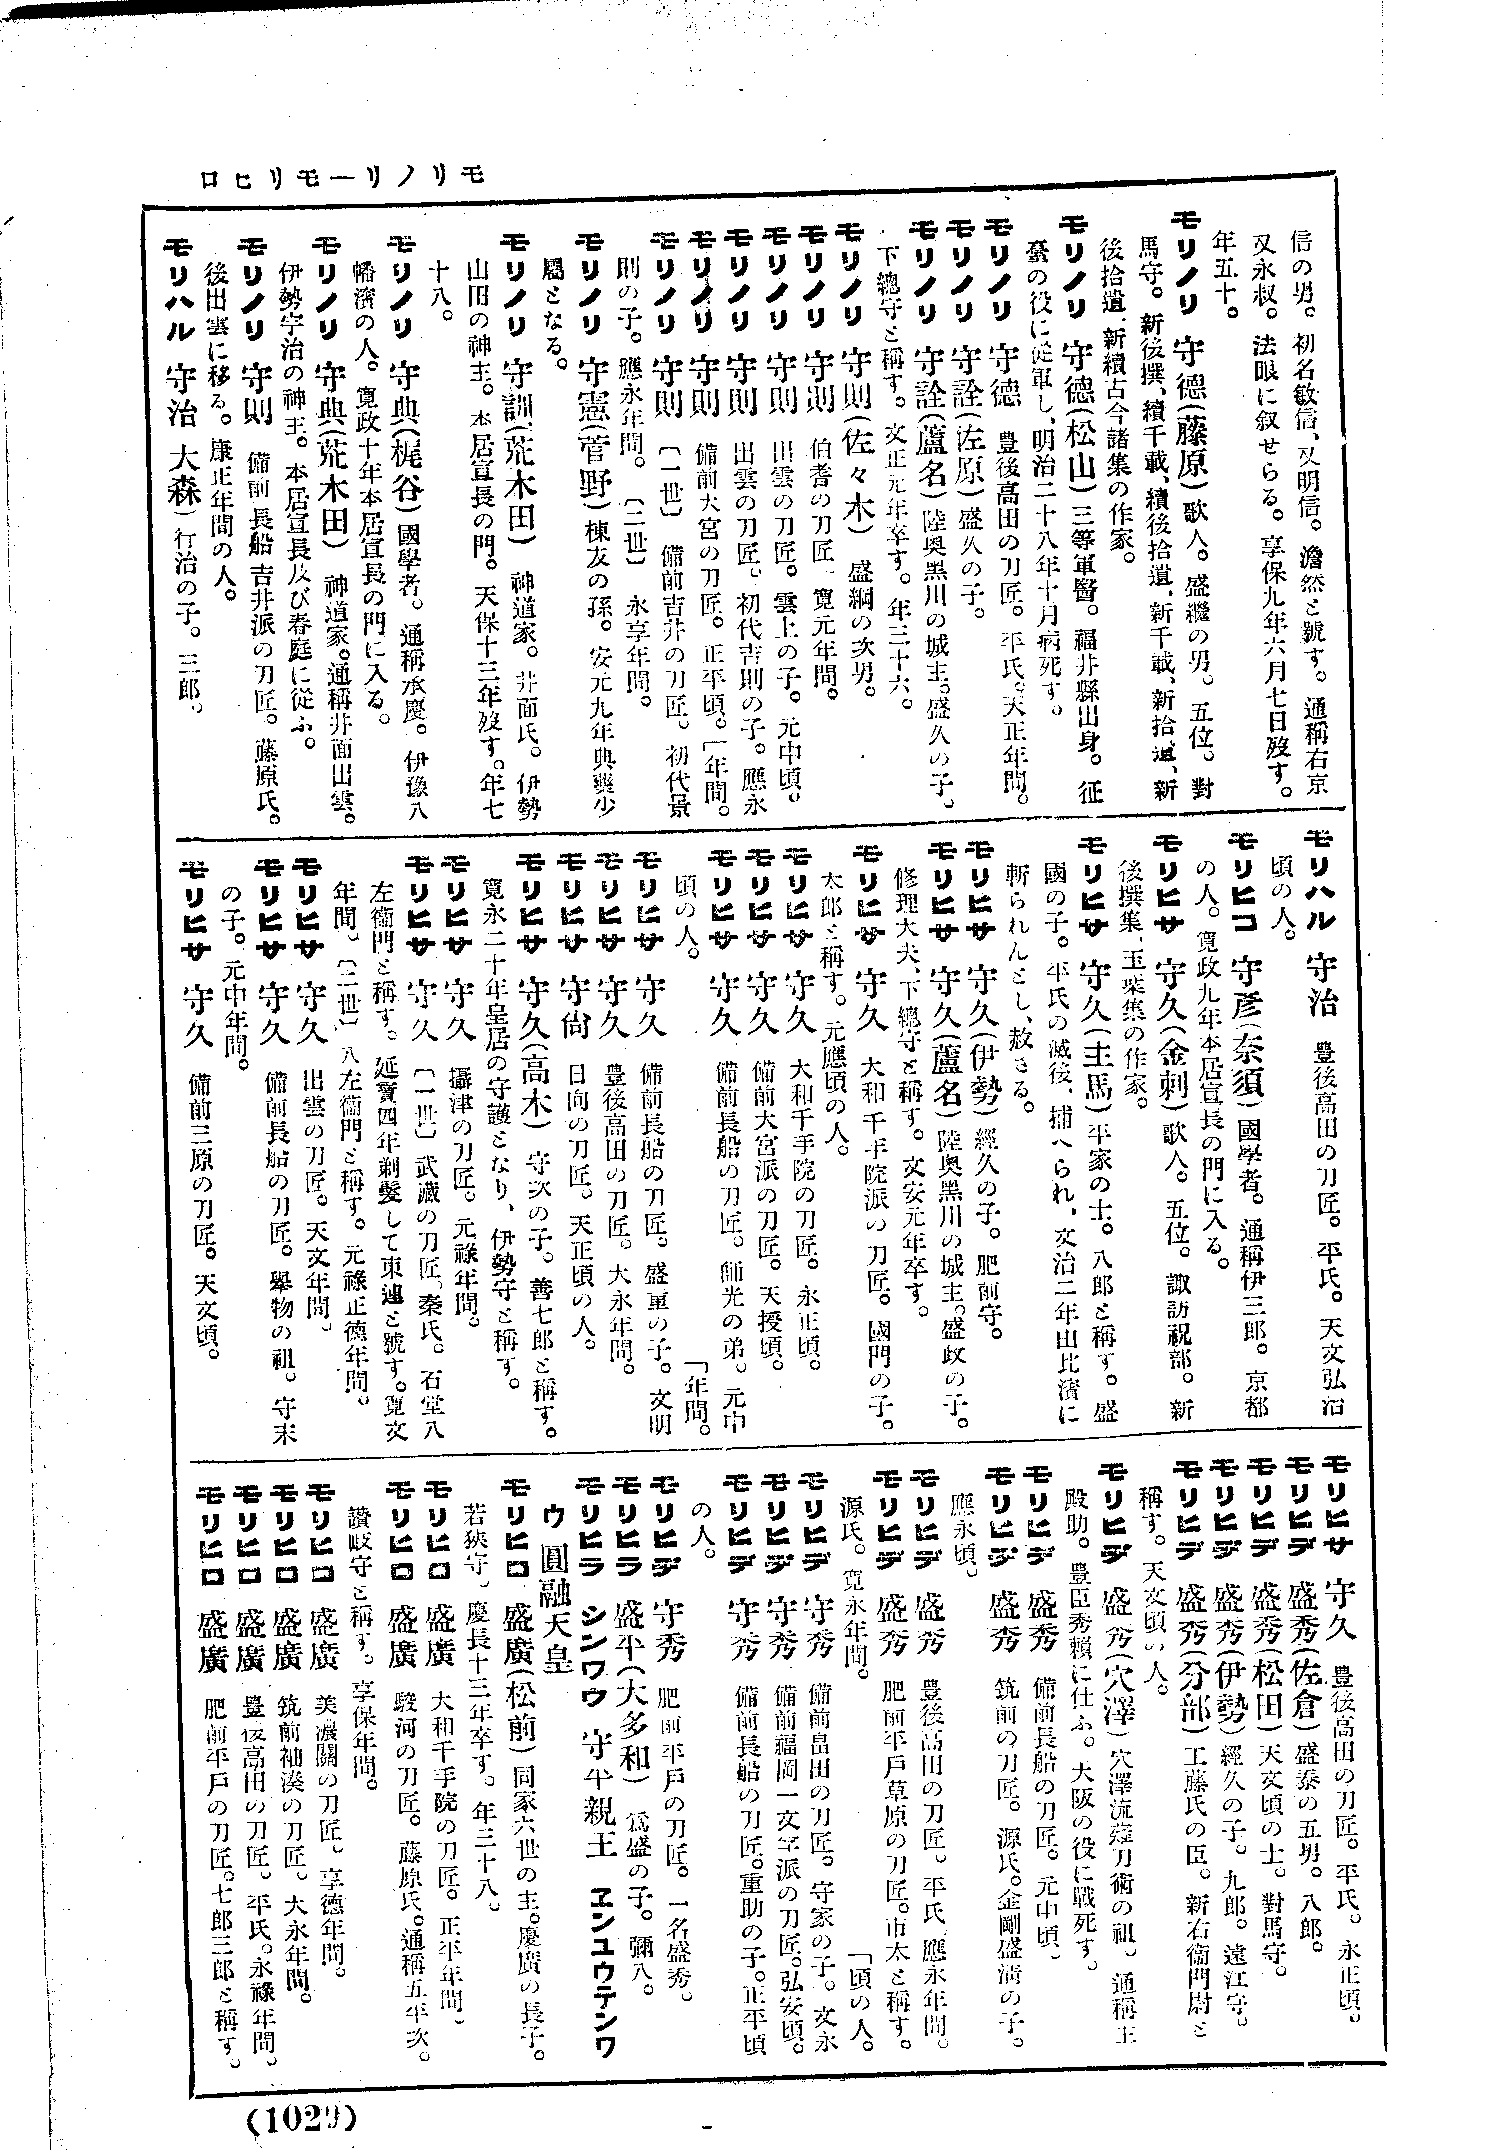 モリノリ―モリヒロ
信の男。初名敏信、又明信。澹然と號す。通稱右京
又永叔。法眼に叙せらる。享保九年六月七日歿す。
年五十。
モリノリ 守德(藤原) 歌人。盛繼の男。五位。對
馬守。新後撰、續千載、續後拾遺、新千載、新拾遺、新
後拾遺、新續古今諸集の作家。
モリノリ 守德(松山) 三等軍醫。福井縣出身。征
臺の役に從軍し、明治二十八年十月病死す。
モリノリ 守德 豊後高田の刀匠。平氏。天正年間。
モリノリ 守詮(佐原) 盛久の子。
モリノリ 守詮(蘆名) 陸奥黑川の城主。盛久の子。
下總守と稱す。文正元年卒す。年三十六。
モリノリ 守則(佐々木) 盛綱の次男。
モリノリ 守則 伯耆の刀匠。寛元年間。
モリノリ 守則 出雲の刀匠。雲上の子。元中頃。
モリノリ 守則 出雲の刀匠。初代吉則の子。應永
モリノリ 守則 備前大宮の刀匠。正平頃。〔年間。
モリノリ 守則 〔一世〕 備前吉井の刀匠。初代景
則の子。應永年間。〔二世〕 永享年間。
モリノリ 守憲(菅野) 棟友の孫。安元九年典藥少
屬となる。
モリノリ 守訓(荒木田) 神道家。井面氏。伊勢
山田の神主。本居宣長の門。天保十三年歿す。年七
十八。
モリノリ 守典(梶谷) 國學者。通稱承慶。伊豫八
幡濱の人。寛政十年本居宣長の門に入る。
モリノリ 守典(荒木田) 神道家。通稱井面出雲。
伊勢宇治の神主。本居宣長及び春庭に從ふ。
モリノリ 守則 備前長船吉井派の刀匠。藤原氏。
後出雲に移る。康正年間の人。
モリハル 守治 大森) 行治の子。三郎。
モリハル 守治 豊後高田の刀匠。平氏。天文弘治
頃の人。
モリヒコ 守彦(奈須) 國學者。通稱伊三郎。京都
の人。寛政九年本居宣長の門に入る。
モリヒサ 守久(金刺) 歌人。五位。諏訪祝部。新
後撰集、玉葉集の作家。
モリヒサ 守久(主馬) 平家の士。八郎と稱す。盛
國の子。平氏の滅後、捕へられ、文治二年由比濱に
斬られんとし、赦さる。
モリヒサ 守久(伊勢) 經久の子。肥前守。
モリヒサ 守久(蘆名) 陸奥黑川の城主。盛政の子。
修理大夫、下總守と稱す。文安元年卒す。
モリヒサ 守久 大和千手院派の刀匠。國門の子。
太郎と稱す。元應頃の人。
モリヒサ 守久 大和千手院の刀匠。永正頃。
モリヒサ 守久 備前大宮派の刀匠。天授頃。
モリヒサ 守久 備前長船の刀匠。師光の弟。元中
頃の人。 〔年間。
モリヒサ 守久 備前長船の刀匠。盛重の子。文明
モリヒサ 守久 豊後高田の刀匠。大永年間。
モリヒサ 守尙 日向の刀匠。天正頃の人。
モリヒサ 守久(高木) 守次の子。善七郎と稱す。
寛永二十年皇居の守護となり、伊勢守と稱す。
モリヒサ 守久 攝津の刀匠。元祿年間。
モリヒサ 守久 〔一世〕 武藏の刀匠。秦氏。石堂八
左衞門と稱す。延寶四年剃髮して東連と號す。寛文
年間。〔二世〕 八左衞門と稱す。元祿正德年間。
モリヒサ 守久 出雲の刀匠。天文年間。
モリヒサ 守久 備前長船の刀匠。擧物の祖。守末
の子。元中年間。
モリヒサ 守久 備前三原の刀匠。天文頃。
モリヒサ 守久 豊後高田の刀匠。平氏。永正頃。
モリヒデ 盛秀(佐倉) 盛泰の五男。八郎。
モリヒデ 盛秀(松田) 天文頃の士。對馬守。
モリヒデ 盛秀(伊勢) 經久の子。九郎。遠江守。
モリヒデ 盛秀(分部) 工藤氏の臣。新右衞門尉と
稱す。天文頃の人。
モリヒデ 盛秀(穴澤) 穴澤流薙刀術の祖。通稱主
殿助。豊臣秀賴に仕ふ。大阪の役に戰死す。
モリヒデ 盛秀 備前長船の刀匠。元中頃。
モリヒデ 盛秀 筑前の刀匠。源氏。金剛盛淸の子。
應永頃。
モリヒデ 盛秀 豊後高田の刀匠。平氏。應永年間。
モリヒデ 盛秀 肥前平戸草原の刀匠。市太と稱す。
源氏。寛永年間。 〔頃の人。
モリヒデ 守秀 備前畠田の刀匠。守家の子。文永
モリヒデ 守秀 備前福岡一文字派の刀匠。弘安頃。
モリヒデ 守秀 備前長船の刀匠。重助の子。正平頃
の人。
モリヒデ 守秀 肥前平戸の刀匠。一名盛秀。
モリヒラ 盛平(大多和) 爲盛の子。彌八。
モリヒラ シンワウ 守平親王 ヱンユウテンワ
ウ 圓融天皇
モリヒロ 盛廣(松前) 同家六世の主。慶廣の長子。
若狹守。慶長十三年卒す。年三十八。
モリヒロ 盛廣 大和千手院の刀匠。正平年間。
モリヒロ 盛廣 駿河の刀匠。藤原氏。通稱五平次。
讃岐守と稱す。享保年間。
モリヒロ 盛廣 美濃關の刀匠。享德年間。
モリヒロ 盛廣 筑前袖湊の刀匠。大永年間。
モリヒロ 盛廣 豊後高田の刀匠。平氏。永祿年間。
モリヒロ 盛廣 肥前平戸の刀匠。七郎三郎と稱す。
(1029)